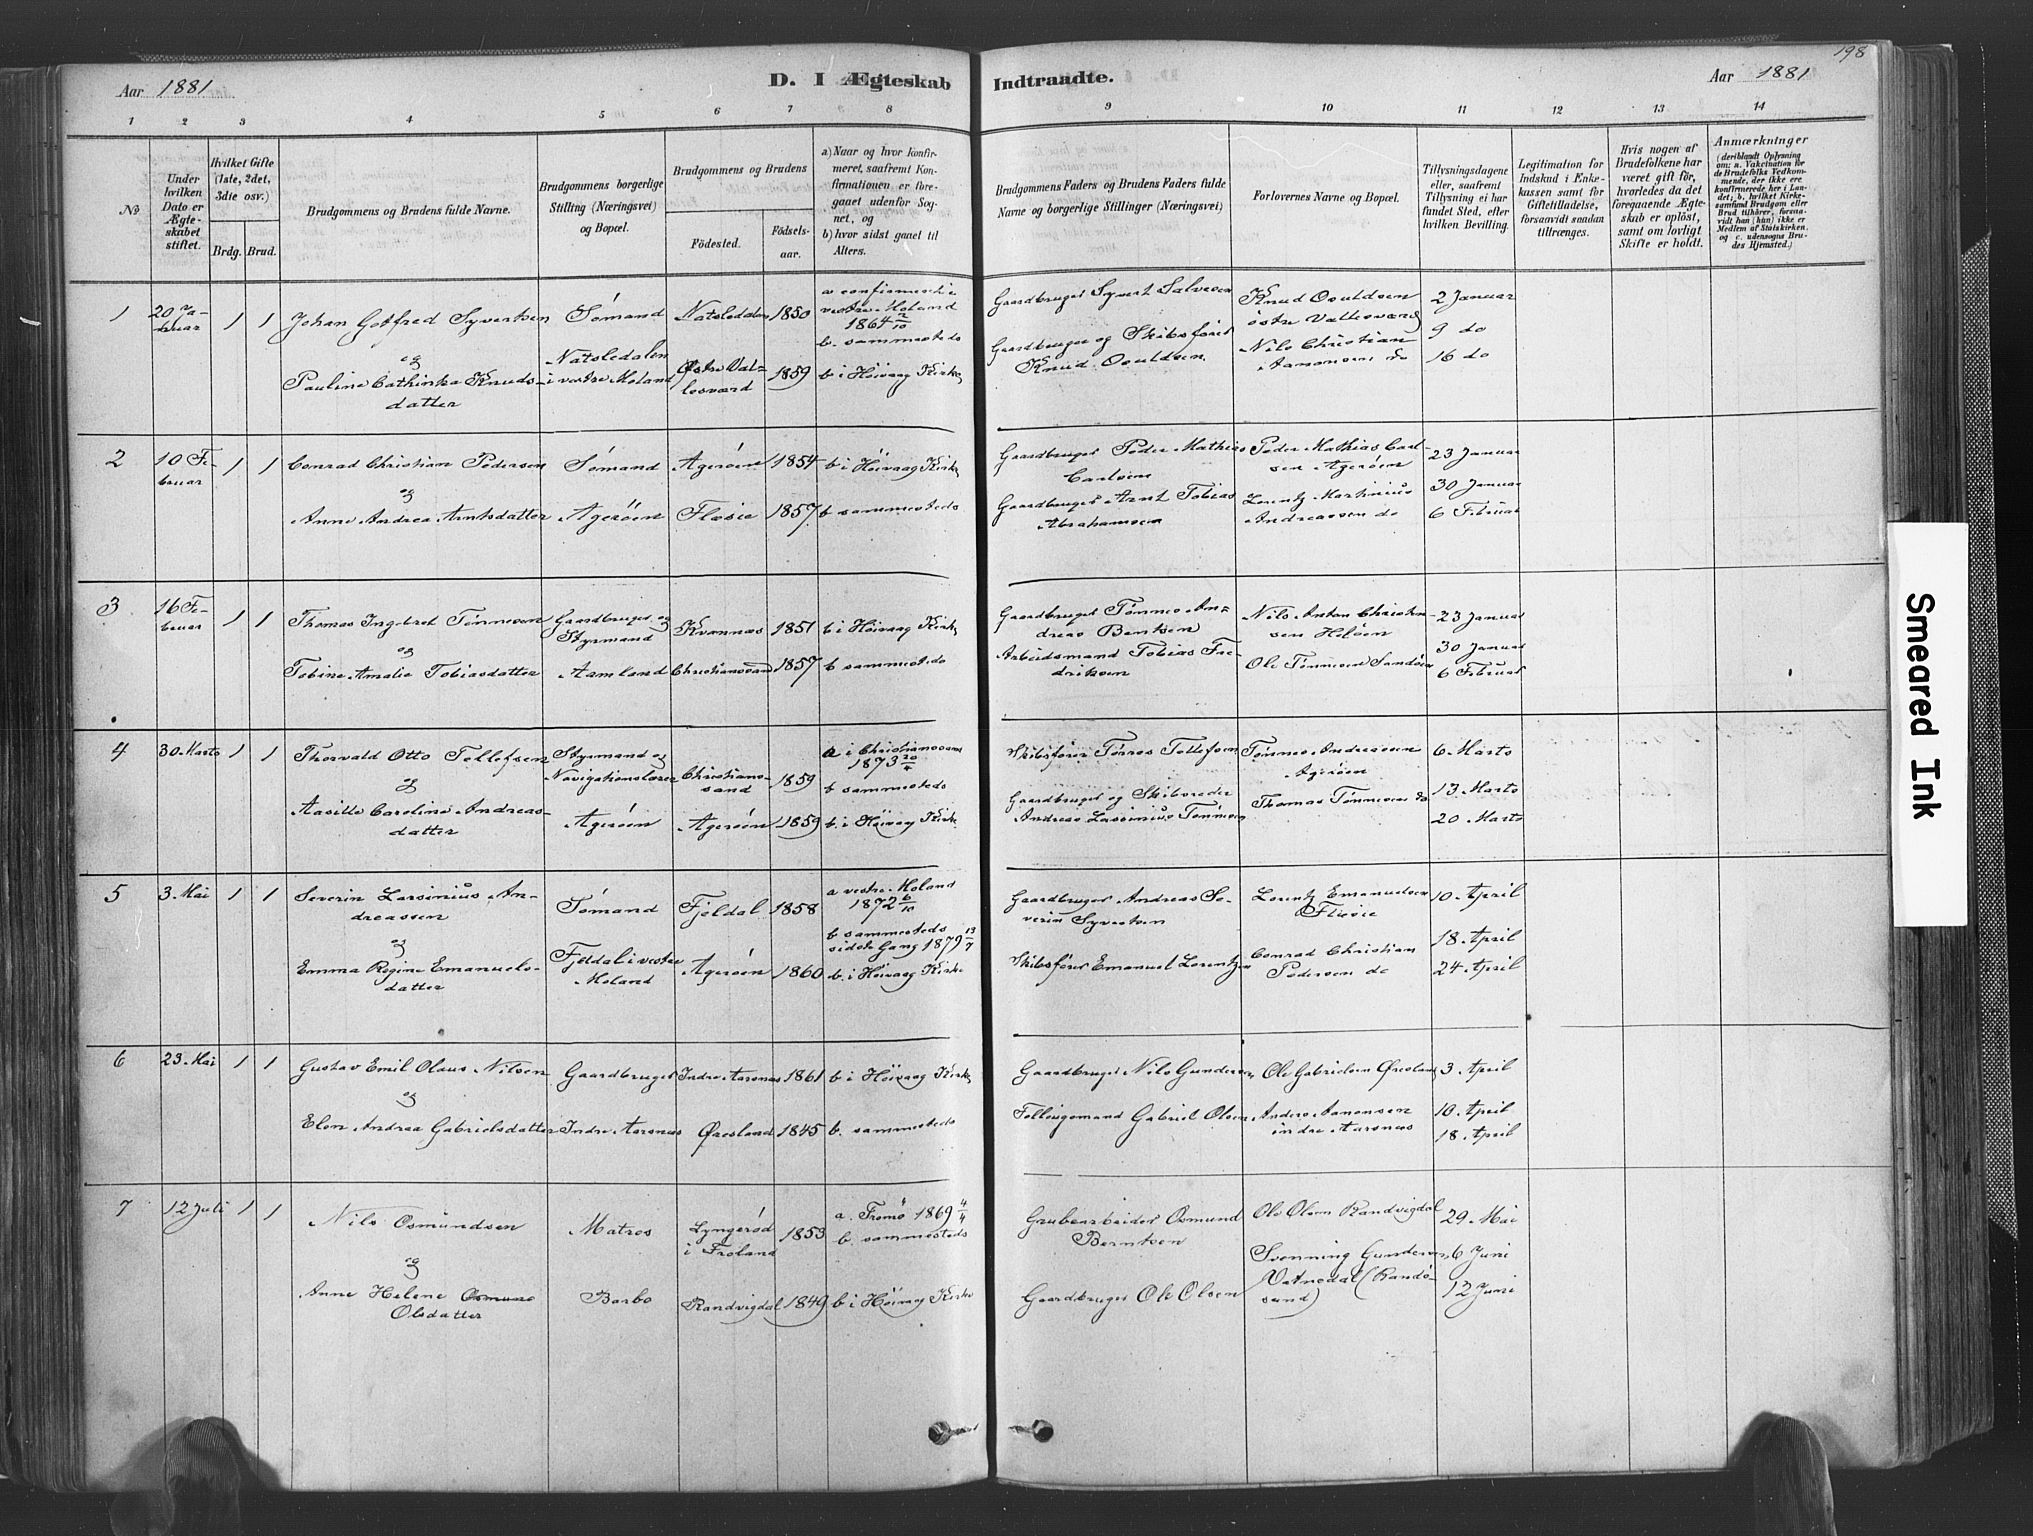 198
Aar 1881
D. I Ægteskab Indtraadte.
Aar 1881
1 2 3 4 5 6 7 8 9 10 11 12 13 14
No
Under hvilken Dato er Ægteskabet stiftet.
Hvilket Gifte (1ste, 2det, 3die osv.)
Brdg. Brud.
Brudgommens og Brudens fulde Navne.
Brudgommens borgerlige Stilling (Næringsvei) og Bopæl.
Brudgommens og Brudens
Fødested.
Fødselsaar.
a) Naar og hvor Konfirmeret, saafremt Konfirmationen er foregaaet udenfor Sognet, og
b) hvor sidst gaaet til Alters.
Brudgommens Faders og Brudens Faders fulde Navne og borgerlige Stillinger (Næringsvei)
Forlovernes Navne og Bopæl.
Tillysningsdagene eller, saafremt Tillysning ei har fundet Sted, efter hvilken Bevilling.
Legitimation for Indskud i Enkekassen samt for Giftetilladelse, forsaavidt saadan tiltrænges.
Hvis nogen af Brudefolkene har været gift før, hvorledes da det foregaaende Ægteskab er opløst, samt om lovligt Skifte er holdt.
Anmærkninger
(deriblandt Oplysning om: a. Vakcination for de Brudefolks Vedkommende, der ikke ere konfirmerede her i Landet; b. hvilket Kirkesamfund Brudgom eller Brud tilhører, forsaavidt han (hun) ikke er Medlem af Statskirken, og c. udensogns Brudes Hjemsted.)
1
20 Januar
1 1
Johan Gotfred Syvertsen
og
Pauline Cathinka Knudsdatter
Sømand
Natsledalen i vestre Moland
Natsledalen 1850
Østre Vallesværd 1859
a confirmert i vestre Moland 1864 2/10
b. sammesteds
b i Høivaag Kirke
Gaardbruger Syvert Salvesen
Gaardbruger og Skibsfører Knud Osuldsen
Knud Osuldsen østre Vallesværd
Nils Christian Aanonsen do
2 Januar
9 do
16 do
2
10 Februar
1 1
Conrad Christian Pedersen
og
Anne Andrea Arntsdatter
Sømand
Agerøen
Agerøen 1854
Flesie 1857
b i Høivaag Kirke
b sammesteds
Gaardbruger Peder Mathias Carlsen
Gaardbruger Arnt Tobias Abrahamsen
Peder Mathias Carlsen Agerøen
Lorentz Martinius Andreassen do
23 Januar
30 Januar
6 Februar
3
16 Februar
1 1
Thomas Ingebret Tønnesen
og
Tobine Amalie Tobiasdatter
Gaardbruger og Styrmand
Aamland
Kvannæs 1851
Christianssand 1857
b i Høivaag Kirke
b sammesteds
Gaardbruger Tønnes Andreas Bentsen
Arbeidsmand Tobias Fredriksen
Nils Anton Christensen Heløen
Ole Tønnesen Sandøen
23 Januar
30 Januar
6 Februar
4
30 Marts
1 1
Thorvald Otto Tellefsen
og
Aasille Caroline Andreasdatter
Styrmand og Navigationslærer
Agerøen
Christianssand 1859
Agerøen 1859
a i Christianssand 1873 20/4
b sammesteds
b. i Høivaag Kirke
Skibsfører Tørres Tellefsen
Gaardbruger og Skibsreder Andreas Lassinius Tønnesen
Tønnes Andreassen Agerøen
Thomas Tønnesen do
6 Marts
13 Marts
20 Marts
5
3 Mai
1 1
Severin Larsinius Andreassen
og
Emma Regine Emanuelsdatter
Sømand
Fjeldal i vestre Moland
Fjeldal 1858
Agerøen 1860
a vestre Moland 1872 6/10
b sammesteds sidste Gang 1879 13/7
b. i Høivaag Kirke
Gaardbruger Andreas Severin Syvertsen
Skibsfører Emanuel Lorentzen
Lorentz Emanuelsen Flesie
Conrad Christian Pedersen do
10 April
18 April
24 April
6
23 Mai
1 1
Gustav Emil Olaus Nilsen
og
Elen Andrea Gabrielsdatter
Gaardbruger
Indre Aarsnæs
Indre Aarsnæs 1861
Øresland 1845
b i Høivaag Kirke
b. sammesteds
Gaardbruger Nils Gundersen
Fellingsmand Gabriel Olsen
Ole Gabrielsen Øresland
Anders Aanonsen indre Aarsnæs
3 April
10 April
18 April
7
12 Juli
1 1
Nils Osmundsen
og
Anne Helene Osmunds Olsdatter
Matros
Barbo
Lyngerød i Froland 1853
Randvigdal 1849
a. Tromø 1869 4/4
b. sammesteds
b i Høivaag Kirke
Grubearbeider Osmund Berntsen
Gaardbruger Ole Olsen
Ole Olsen Randvigdal
Svenning Gundersen Vatnedal (Randøsund)
29 Mai
6 Juni
12 Juni
Smeared Ink